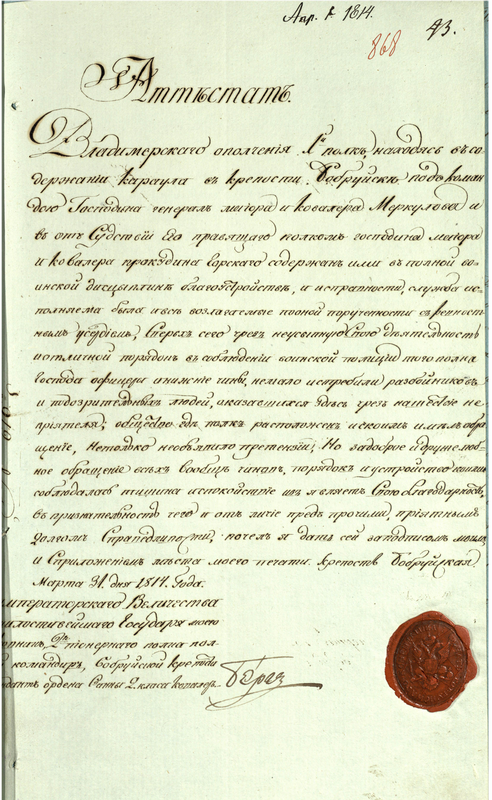 Апр. 1. 1814.
868
43.
Аттѣстатъ.
Владимерскаго ополченія 1й полкъ, находясь въ со
держаніи караула въ крепости Бобруйскѣ подъ коман
дою Господина генералъ маіора и ковалера Меркулова и
въ отъ Судствіи Его правящаго полкомъ господина маіора
и ковалера прокудина Горскаго содержанъ или въ полной во
инской дисциплинѣ благоустройствѣ, и исправности, служба ис
полняема была и всѣ возлагаемые по оной порученности съ ревност
нымъ усердіемъ, Сверьхъ сего чрезъ неусыпную Свою дѣятельность
и отличной порядокъ въ соблюденіи воинской полиціи того полка
Господа офицеры и нижніе чины, немало истребили разбойниковъ
и подозрительныхъ людей, оказавшихся здѣсь чрезъ нашествіе не
пріятеля; общество гдѣ полкъ расположенъ и скоимъ имѣлъ обра
щеніе, Нетолько необъявило претензіи; Но задоброе и дружелюб
ное обращеніе всѣхъ Вообще чиновъ, порядокъ и устройство коими
соблюдалась тишина и спокойствіе изъявляетъ Свою благодарность,
въ признательность чего и отъ личіе предъ прочими, пріятнымъ
долгомъ Справедливости, почелъ я дать сей за подписомъ моимъ
и Сприложеніемъ герба моего печати. крепость Бобруйская
Марта 31. дня 1814. Года.
императорскаго Величества
милостивейшаго Государя моего
2го піонернаго полка пол
командиръ, Бобруйской крепости
дантъ ордена Св: Анны 2. класа Ковалеръ
Бергъ